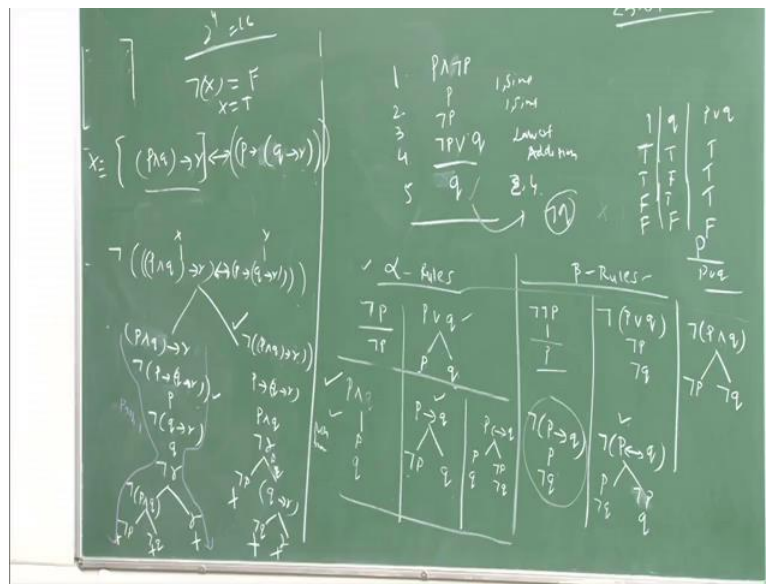 2⁴ = 16
¬
¬(X) = F
X = T
X ≡ [(P∧q)→r]↔(P→(q→r))
X Y
¬(((P∧q)→r)↔(P→(q→r)))
(P∧q)→r
¬(P→(q→r))
P
¬(q→r)
q
¬r
¬(P∧q) r
¬P ¬q
¬((P∧q)→r)
P→(q→r)
P∧q
¬r
P
q
¬P (q→r)
¬q r
1. P∧¬P
2. P 1, Sim
3 ¬P 1, Sim
4 ¬P∨q Law of Addition
5 q 2, 4.
¬q
P q P∨q
T T T
T F T
F T T
F F F
P
P∨q
✓ α-Rules
¬P
¬P
P∨q ✓
P q
✓ P∧q
P
q
P→q
¬P q
P↔q
P ¬P
q ¬q
β-Rules-
¬¬P
P
¬(P∨q)
¬P
¬q
¬(P∧q)
¬P ¬q
¬(P→q)
P
¬q
¬(P↔q)
P ¬P
¬q q